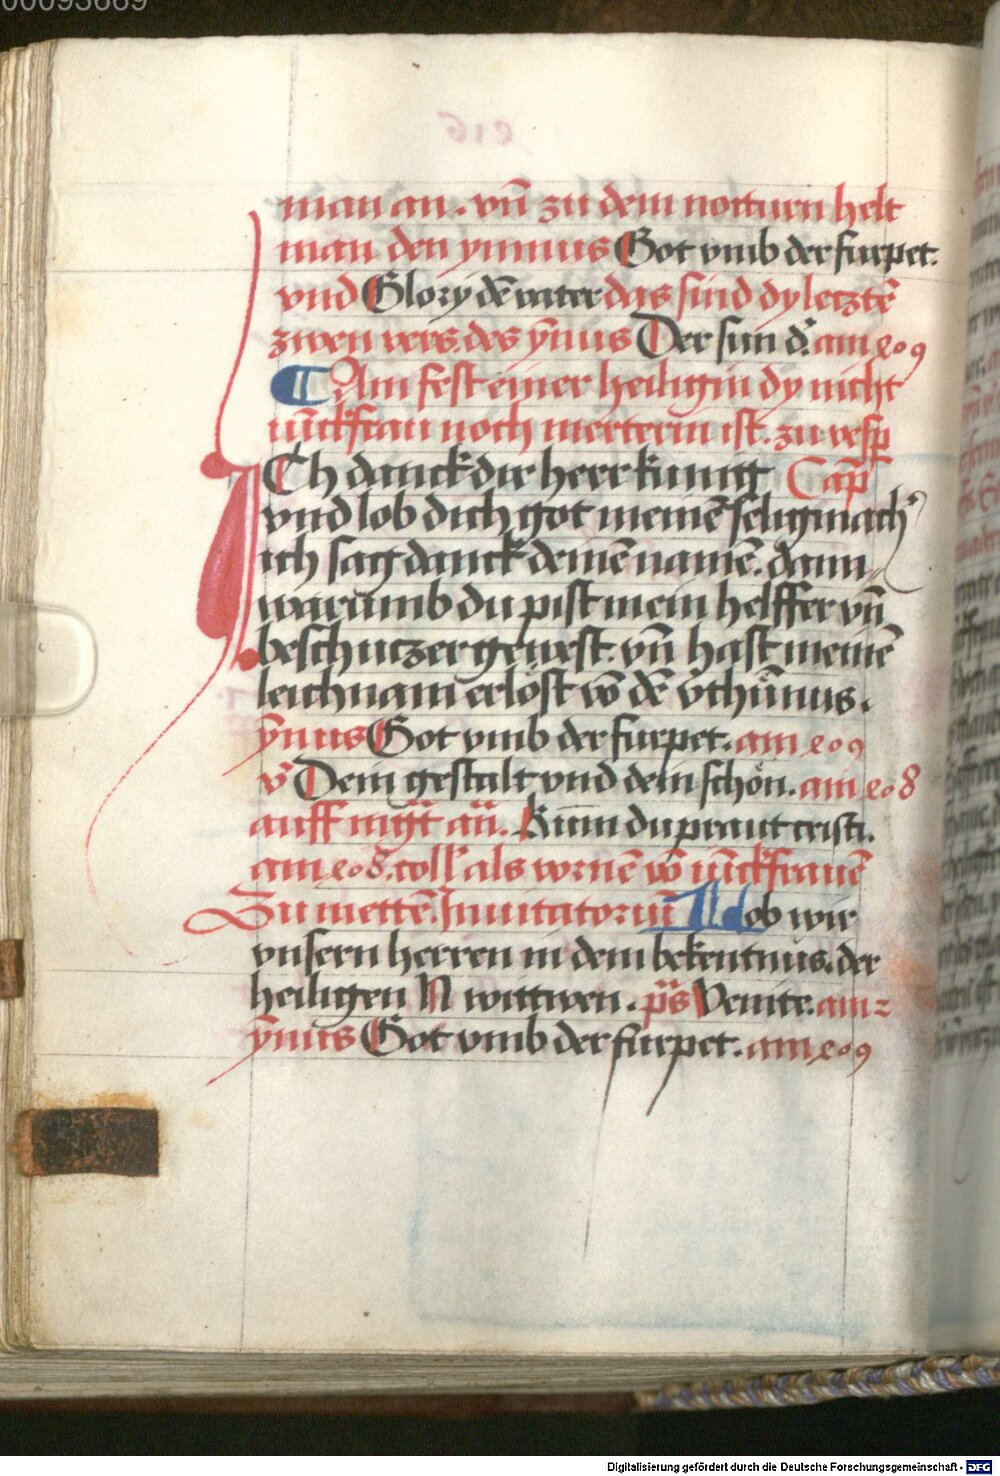 00093689
man an. vn̄ zu dem notturn helt
man den ymnus Got vmb der furpet.
vnd Glory dē vater das sind dy lecztē
zwen vers des ȳnus Der sun d'. am 209
Am fest einer heiligin dy nicht
iūckfrau noch merterin ist. zu vesp
ICh danck dir herr kunig Cap
vnd lob dich got meinē seligmach'
ich sag danck deinē namē. dann
warumb du pist mein helffer vn̄
beschuczer gewest. vn̄ hast meinē
leichnam erlöst vō dē v'thūmus.
ȳnus Got vmb der furpet. am 209
v' Dein gestalt vnd dein schön. am 208
auff mg̅t an̄. Kum̄ du praut cristi.
am 208. coll' als vornē vō iūckfrauē
Zu mettē. Inuitatoriū Nu lob wir
vnsern herren in dem bekentnus. der
heiligen N wittwen. ps̄ Venite. am 2
ȳnus Got vmb der furpet. am 209
Digitalisierung gefördert durch die Deutsche Forschungsgemeinschaft - DFG